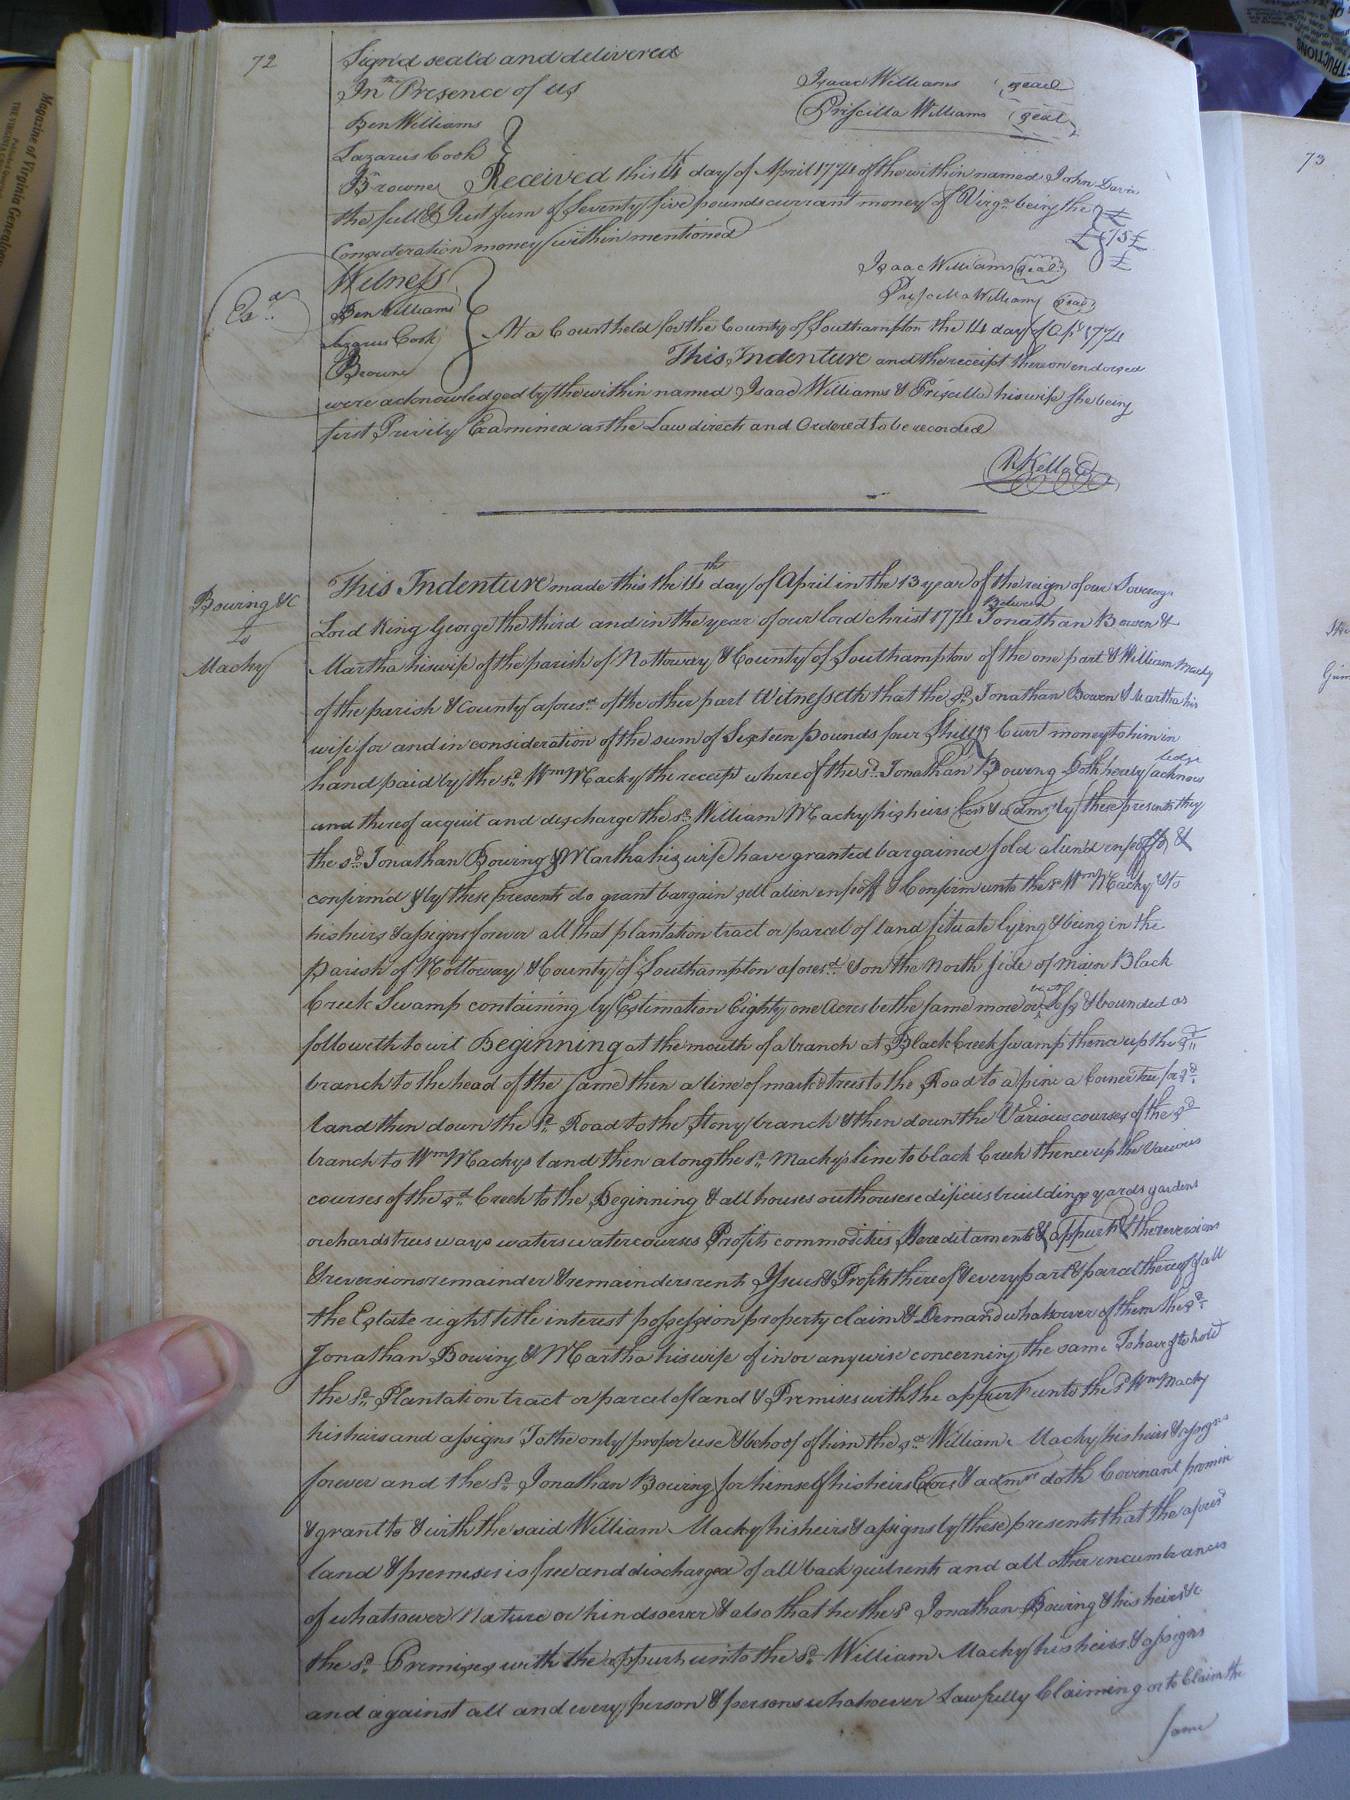 72
Sign'd seal'd and delivered
In Presence of us
Isaac Williams (seal)
Priscilla Williams (seal)
Ben Williams
Lazarus Cook
Browne
Received this 14th day of April 1774 of the within named John Davis
the full & Just sum of Seventy five pounds currant money of Virga. being the
Consideration money within mentioned
£75
Isaac Williams (seal)
Priscilla Williams (seal)
Exd.
Witness
Ben Williams
Lazarus Cook
Browne
At a Court held for the County of Southampton the 14 day of Apl 1774
This Indenture and the receipt thereon endorsed
were acknowledged by the within named Isaac Williams & Priscilla his wife she being
first Privily Examined as the Law directs and Ordered to be recorded
R Kello
Bowing &c
to
Macky
This Indenture made this the 14th day of April in the 13 year of the reign of our Sovereign
Lord King George the third and in the year of our lord christ 1774 Between Jonathan Bowen &
Martha his wife of the parish of Nottoway & County of Southampton of the one part & William Macky
of the parish & County aforesd. of the other part Witnesseth that the sd. Jonathan Bowen & Martha his
wife for and in consideration of the sum of Sixteen pounds four Shillgs Curr money to him in
hand paid by the sd. Wm Macky the receipt where of the sd. Jonathan Bowing Doth hereby acknow
ledge
and thereof acquit and discharge the sd. William Macky his heirs Exrs & admrs by these presents they
the sd. Jonathan Bowing & Martha his wife have granted bargained sold alien'd enfeoff'd &
confirm'd & by these presents do grant bargain sell alien enfeoff & Confirm unto the sd Wm Macky & to
his heirs & assigns forever all that plantation tract or parcel of land situate lying & being in the
Parish of Nottoway & County of Southampton aforesd. & on the North side of Black
Creek Swamp containing by Estimation Eighty one Acres be the same more or less & bounded as
followeth to wit Beginning at the mouth of a branch at Black Creek swamp thence up the sd.
branch to the head of the same then a line of markd trees to the Road to a pine a Corner tree for sd.
land then down the sd. Road to the Stony branch & then down the Various courses of the sd
branch to Wm Mackys land then along the sd. Mackys line to black Creek thence up the various
courses of the sd. Creek to the Beginning & all houses outhouses edificies buildings yards gardens
orchards trees ways waters watercourses Profits commodities Hereditaments & appurts & the reversion
& reversions remainder & remainders rents Issues & Profits thereof & every part & parcel thereof & all
the Estate right title interest possession property claim & Demand whatsoever of them the sd.
Jonathan Bowing & Martha his wife of in or anywise concerning the same To have & to hold
the sd. Plantation tract or parcel of land & Premises with the appurts unto the sd Wm Macky
his heirs and assigns To the only proper use & behoof of him the sd William Macky his heirs & assigns
forever and the sd. Jonathan Bowing for himself his heirs Exors & admrs doth Covenant promise
& grant to & with the said William Macky his heirs & assigns by these presents that the aforesd
land & premises is free and discharged of all back quitrents and all other incumbrances
of whatsoever Nature or kindsoever & also that he the sd Jonathan Bowing & his heirs &c
the sd. Premises with the appurts unto the sd. William Macky his heirs & assigns
and against all and every person & persons whatsoever Lawfully Claiming or to Claim the
same
73
Magazine of Virginia Genealogy